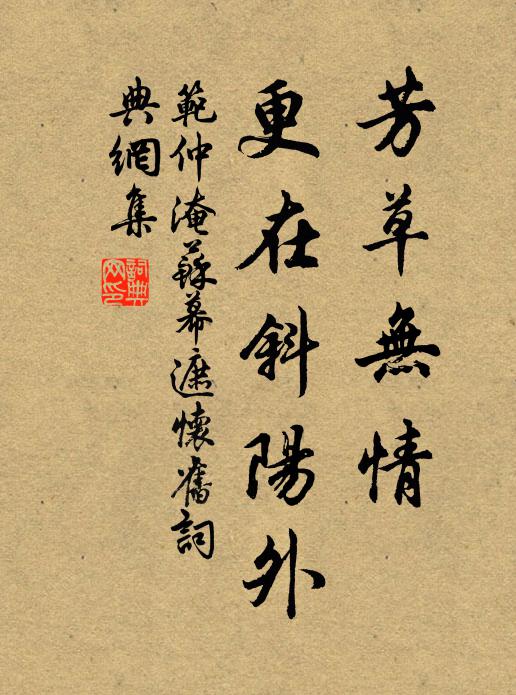 芳草無情
更在斜陽外
範仲淹蘇幕遮懷舊詞
典網集
詞典網印